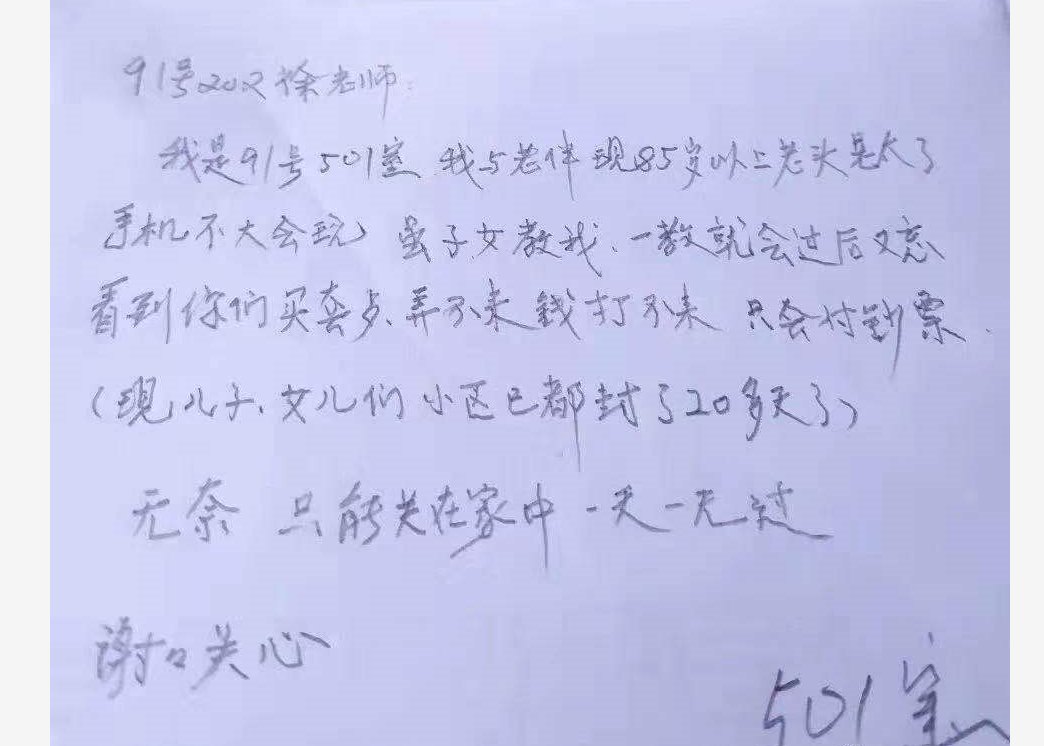 91号202徐老师:
我是91号501室 我与老伴现85岁以上老头老太了
手机不大会玩) 虽子女教我、一教就会过后又忘
看到你们买套歺、弄不来 钱打不来 只会付钞票、
(现儿子、女儿们 小区已都封了20多天了)
无奈 只能关在家中 一天一天过
谢谢关心
501室